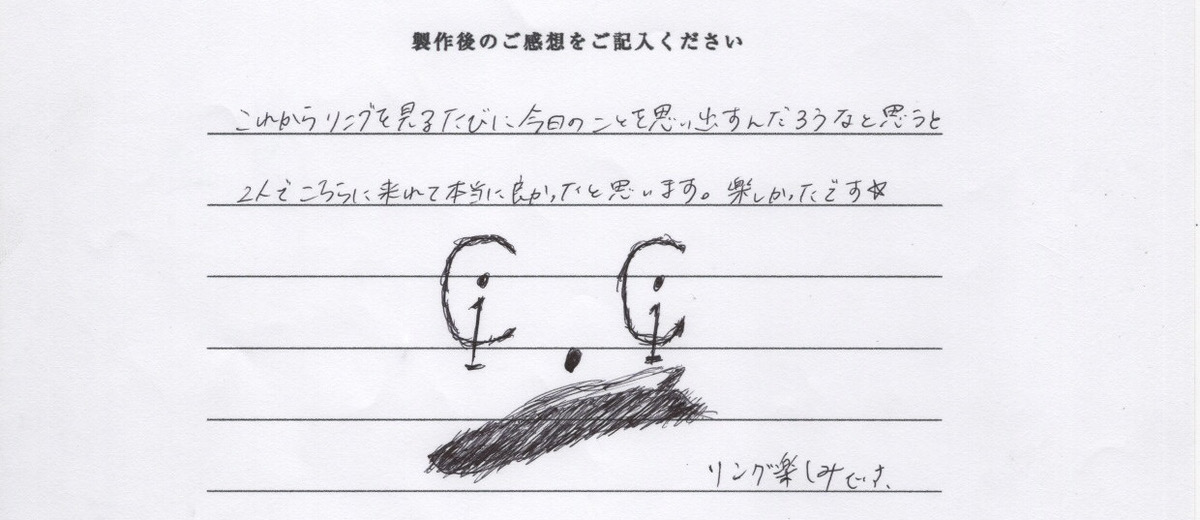 製作後のご感想をご記入ください
これからリングを見るたびに今日のことを思い出すんだろうなと思うと
2人でこちらに来れて本当に良かったと思います。楽しかったです☆
Ci Ci
リング楽しみです、